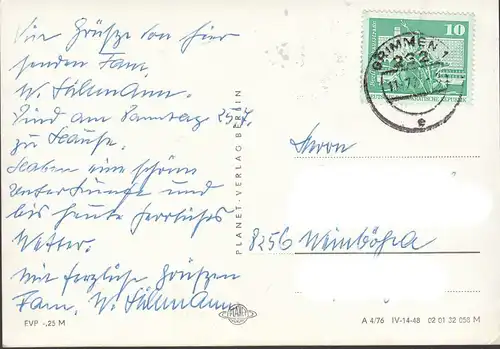 Vie Grüße von hier
senden Fam.
W. Hillmann.
Sind am Samstag
zu Hause.
Haben eine schöne
Unterkunft und
bis heute herrliches
Wetter.
Mit herzliche Grüßen
Fam. W. Hillmann
EVP -,25 M
PLANET-VERLAG BERLIN
PLANET
10
GRIMMEN 1
232
e
8256 Weinböhla
A 4/76 IV-14-48 02 01 32 058 M